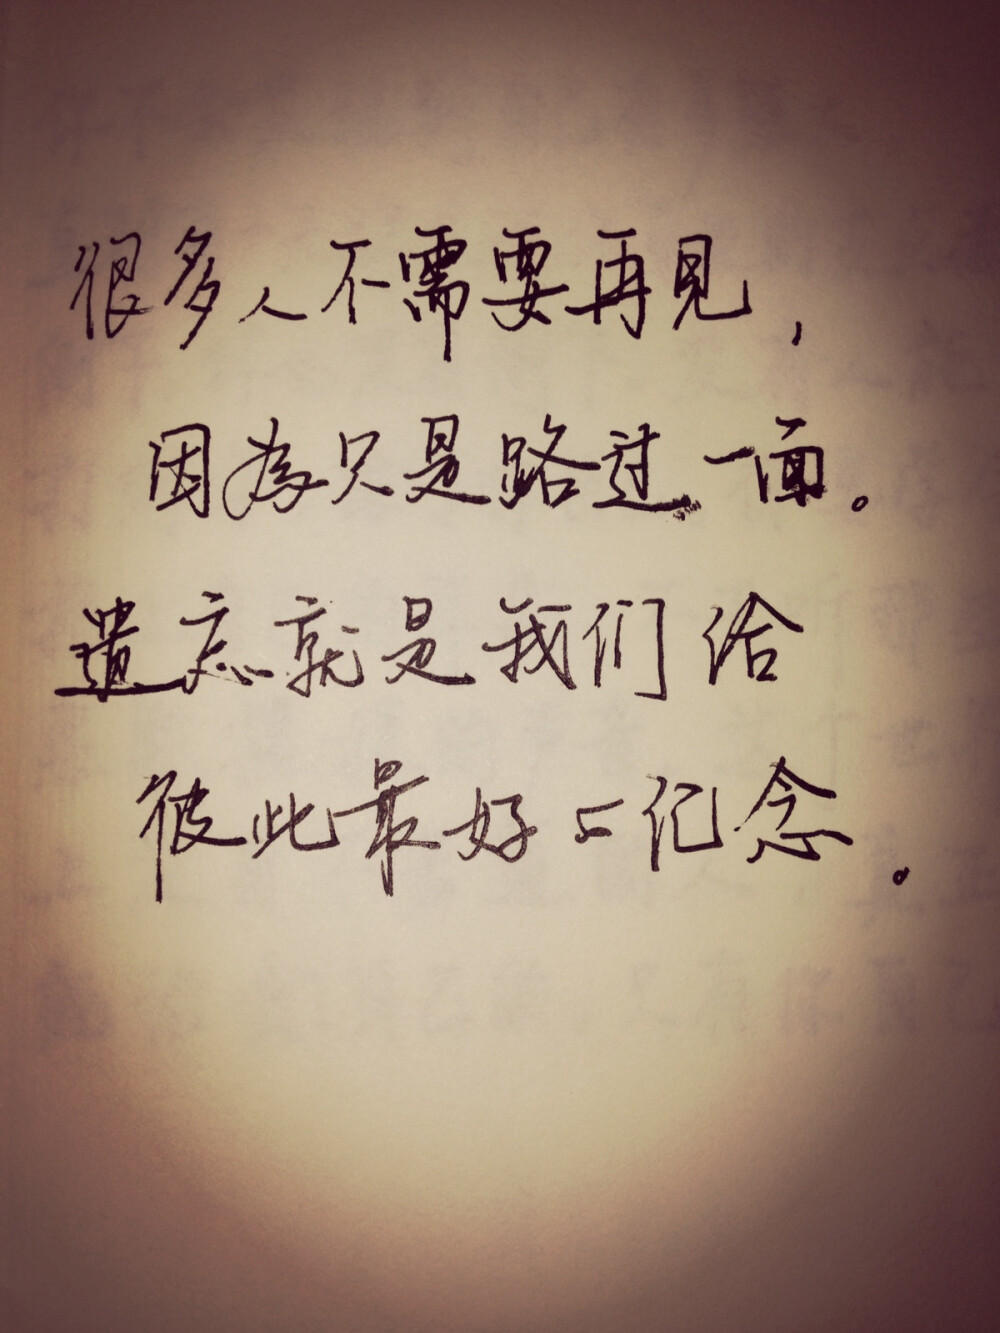 很多人不需要再见，
因為只是路过一面。
遗忘就是我们给
彼此最好的纪念。